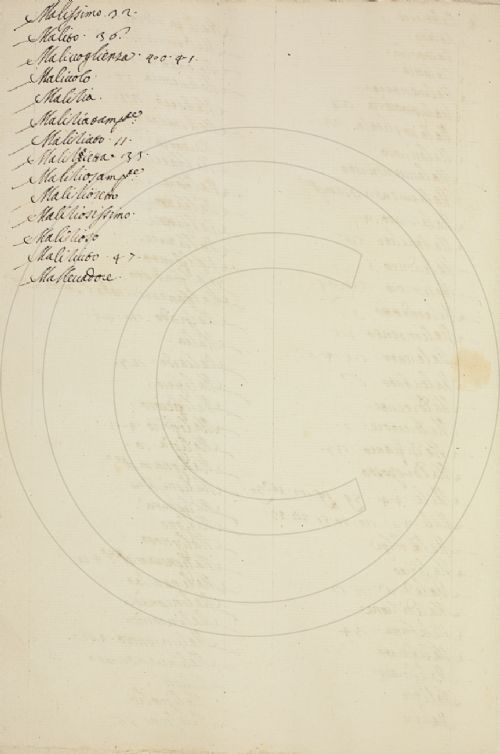 Malissimo. 32.
Malito. 36.
Malivoglienza. 400. 41.
Malivolo.
Malizia.
Maliziatam.te
Maliziato. 11.
Maliziosam.te
Maliziosetto
Maliziosissimo.
Malizioso
Maliziuto. 47.
Mallevadore.